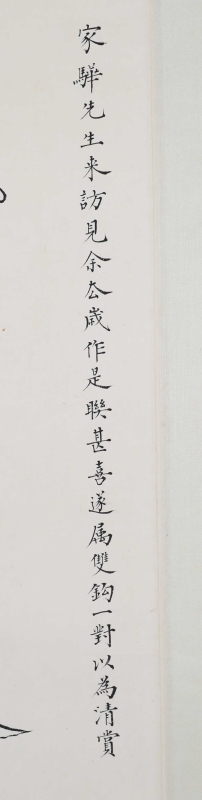 家驊先生来訪見余去歲作是聯甚喜遂属雙鈎一對以為清賞